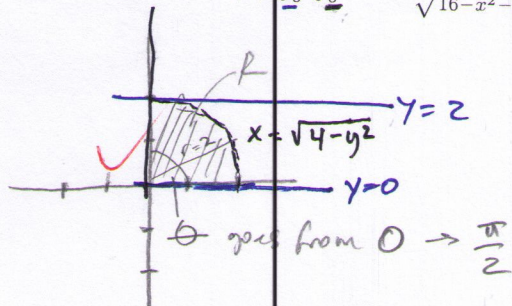 √16−x²−
R
y = 2
r = 2
x = √4−y²
y=0
θ goes from 0 → π/2